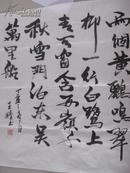 兩個黃鸝鳴翠
柳一行白鷺上
青天窗含西嶺千
秋雪門泊東吳
萬里船